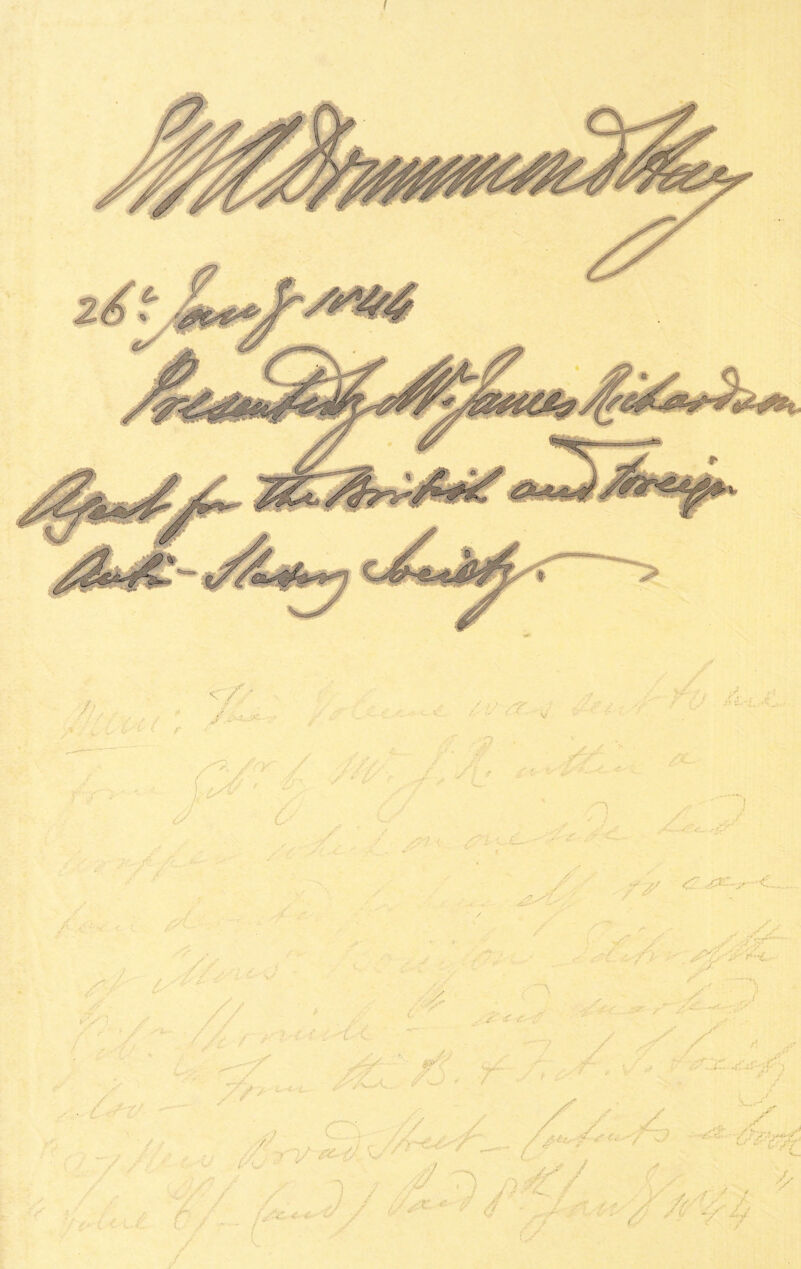 EWA Drummond Hay
26t. Jany 1844
Presented by Mr. James Richardson
Agent for the British and Foreign
Anti-Slavery Society.
Mem: This Volume was sent to me
from Gibr. by Mr. J. R. within a
wrapper which on one side had
been directed for himself to care
of "Monsr. Editor of the
Gibr. Chronicle" – and marked
also – "From the B. & F. A. S. Society
"27 New Broad Street – Contents a book
"value 6/– (and) Paid 8th Jany 1844"